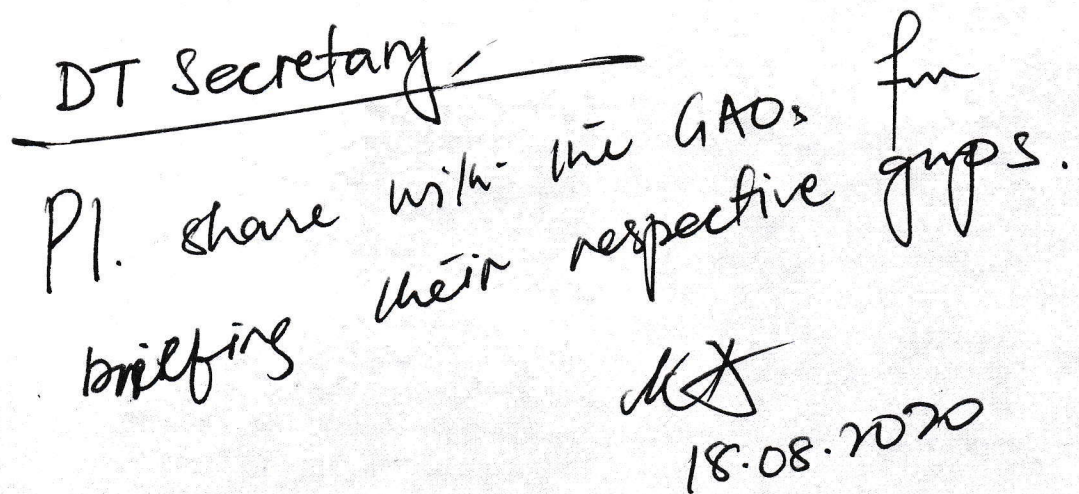 DT Secretary,
Pl. share with the GAOs for
briefing their respective gups.
18.08.2020